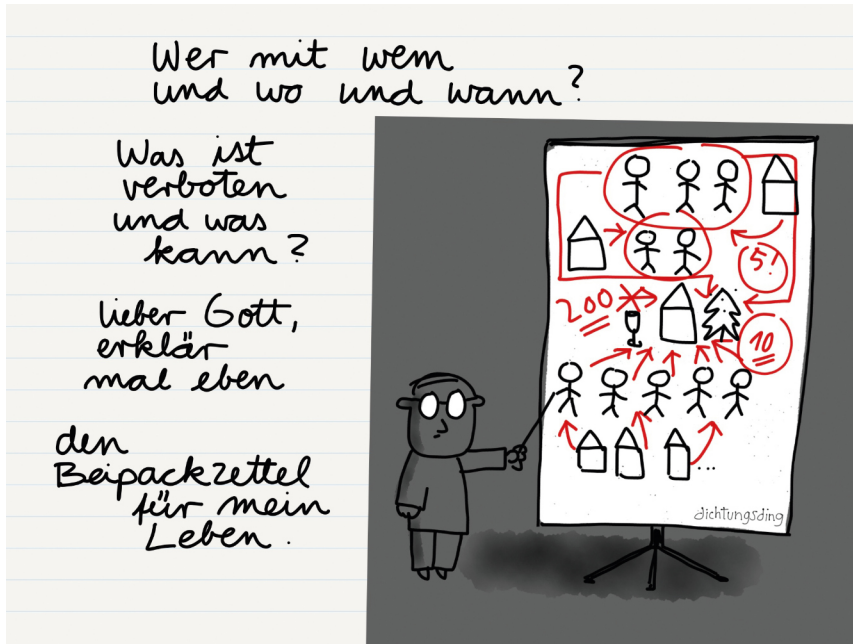 Wer mit wem
und wo und wann?
Was ist
verboten
und was
kann?
lieber Gott,
erklär
mal eben
den
Beipackzettel
für mein
Leben.
5!
200
10
...
dichtungsding